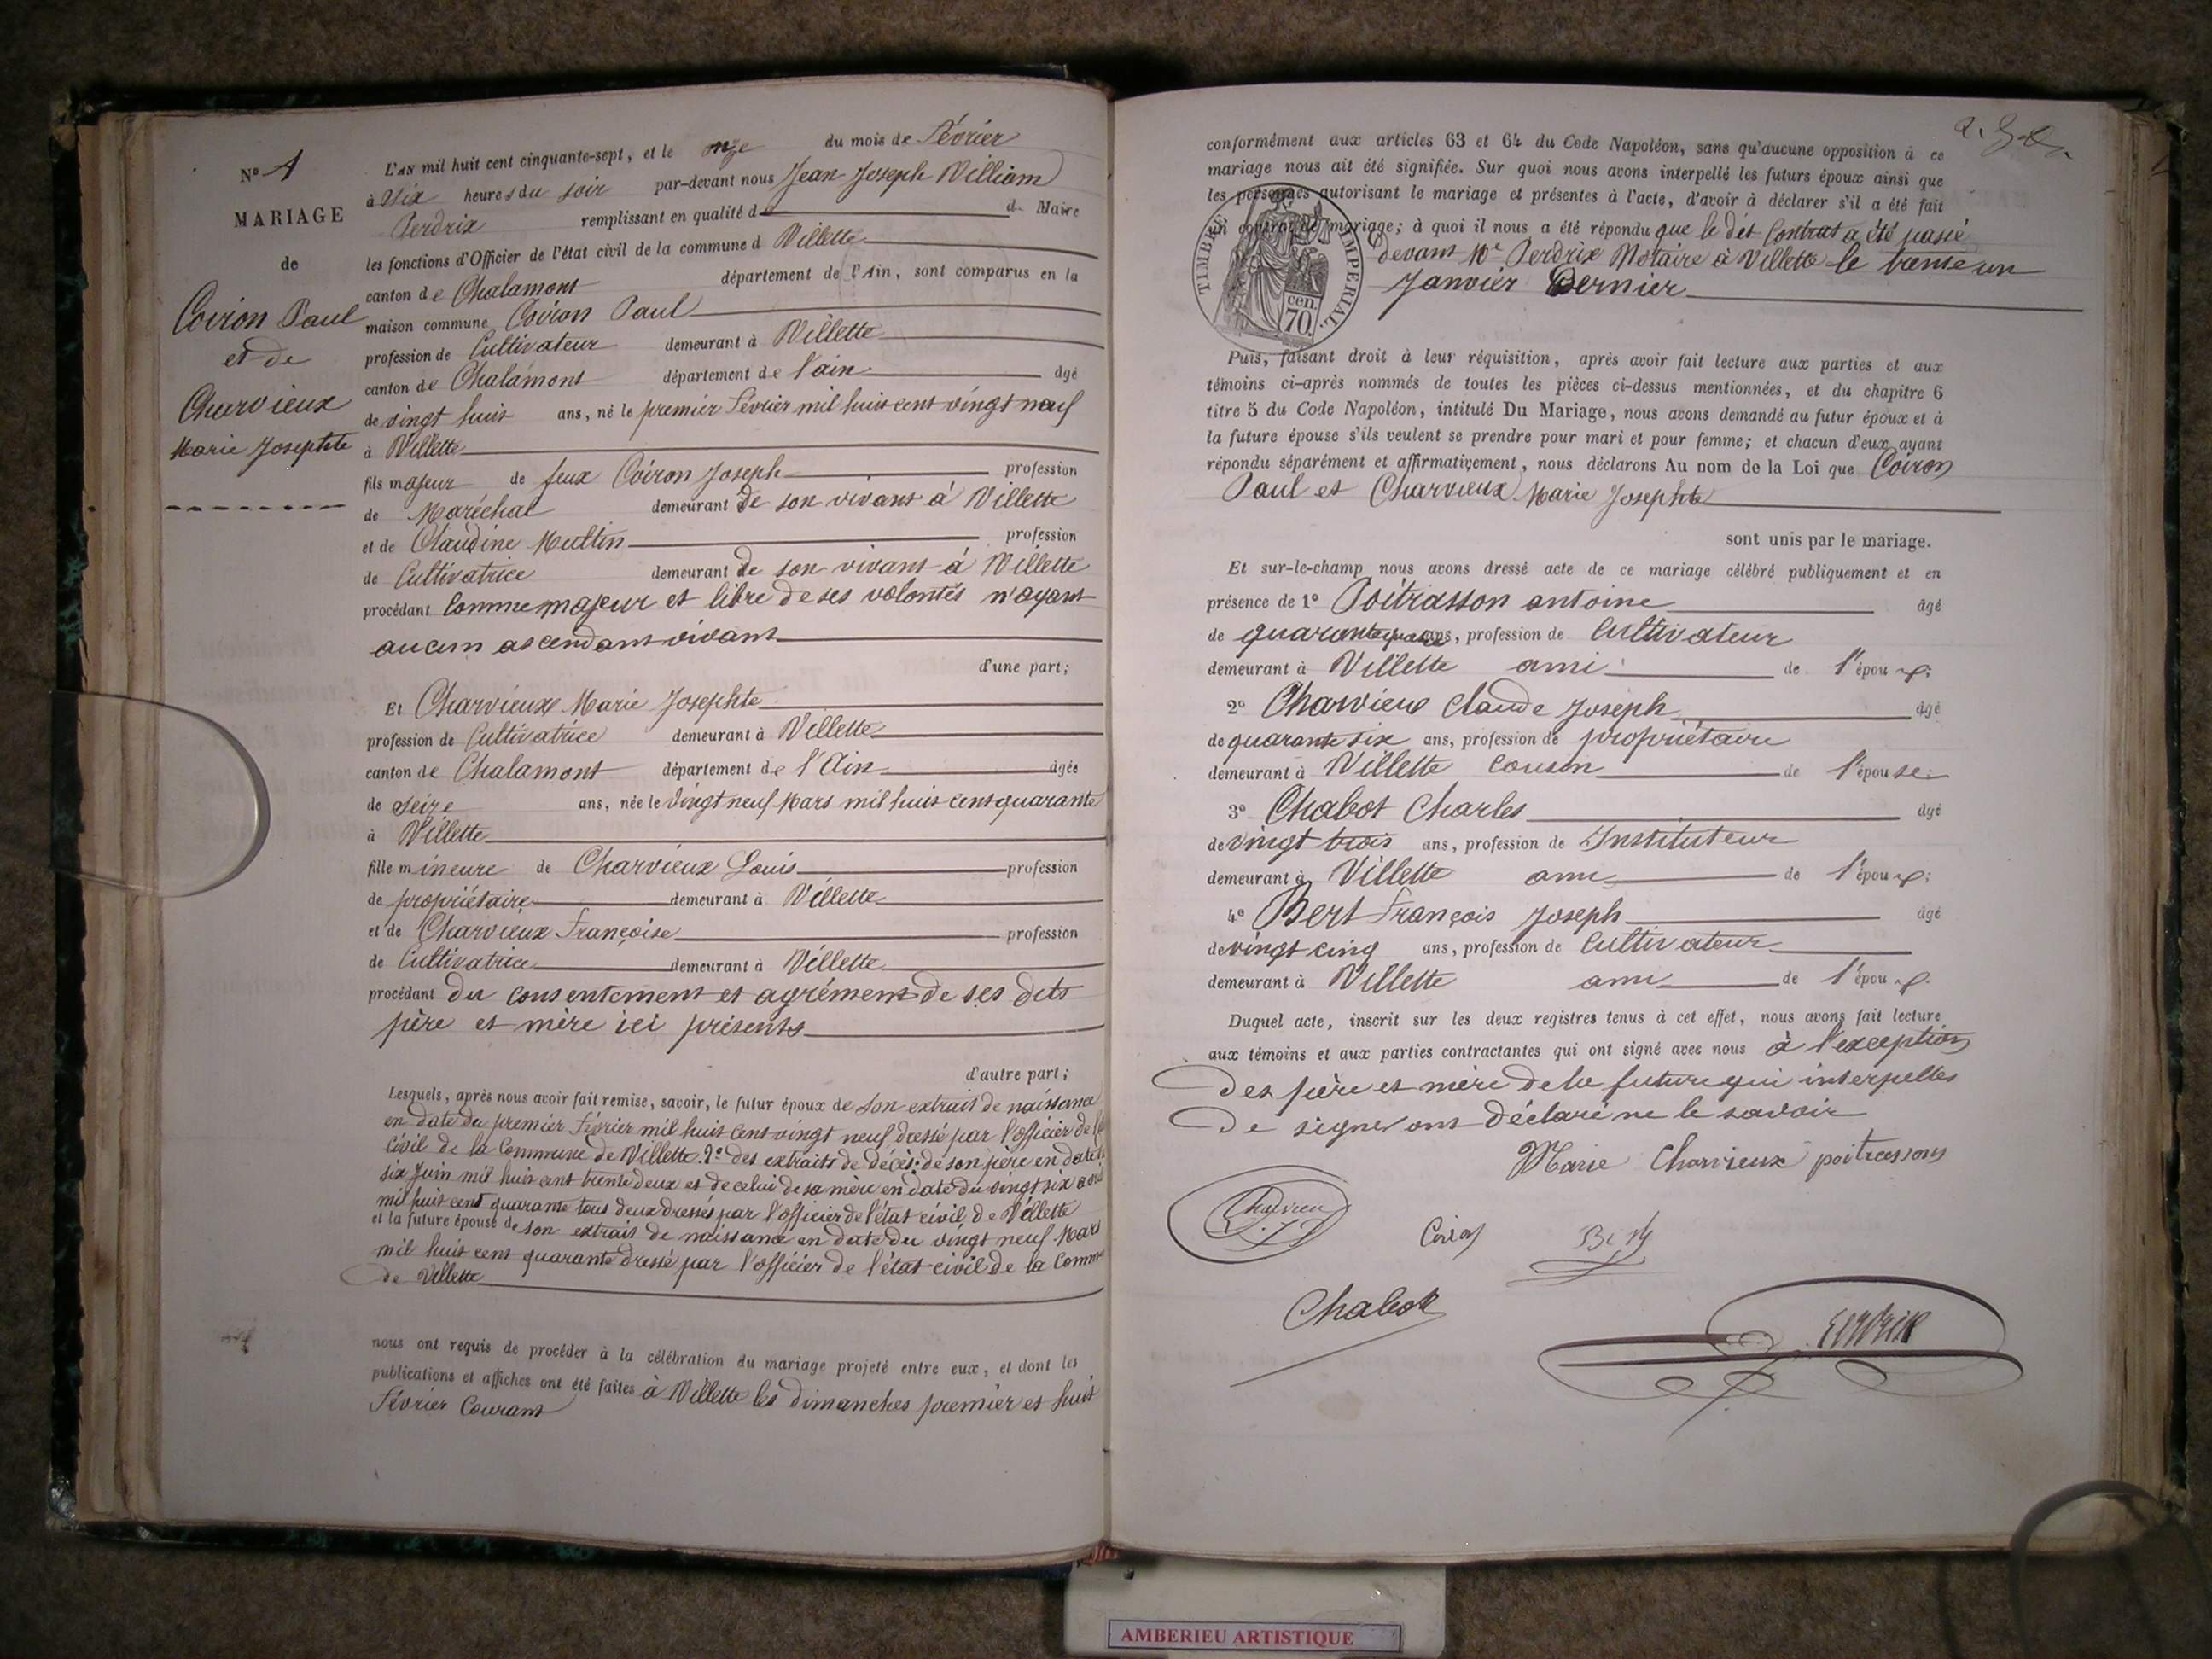 N° 1
MARIAGE
de
Coiron Paul
et de
Charvieux
Marie Josephte
L'AN mil huit cent cinquante-sept, et le onze du mois de Février
à six heures du soir par-devant nous Jean Joseph William
Perdrix remplissant en qualité de Maire
les fonctions d'Officier de l'état civil de la commune d Villette
canton de Chalamont département de l'Ain, sont comparus en la
maison commune Coiron Paul
profession de Cultivateur demeurant à Villette
canton de Chalamont département de l'ain âgé
de vingt huit ans, né le premier Février mil huit cent vingt neuf
à Villette
fils majeur de feux Coiron Joseph profession
de Maréchal demeurant de son vivant à Villette
et de Claudine Multin profession
de Cultivatrice demeurant de son vivant à Villette
procédant comme majeur et libre de ses volontés n'ayant
aucun ascendant vivant
d'une part;
Et Charvieux Marie Josephte
profession de Cultivatrice demeurant à Villette
canton de Chalamont département de l'Ain âgée
de seize ans, née le vingt neuf Mars mil huit cent quarante
à Villette
fille mineure de Charvieux Louis profession
de propriétaire demeurant à Villette
et de Charvieux Françoise profession
de Cultivatrice demeurant à Villette
procédant du consentement et agrément de ses dits
père et mère ici présents
d'autre part;
Lesquels, après nous avoir fait remise, savoir, le futur époux de son extrait de naissance
en date du premier Février mil huit cent vingt neuf dressé par l'officier de
civil de la Commune de Villette. 2° des extraits de décès: de son père en date
six Juin mil huit cent trente deux et de celui de sa mère en date du vingt six
mil huit cent quarante tous deux dressés par l'officier de l'état civil de Villette
et la future épouse de son extrait de naissance en date du vingt neuf Mars
mil huit cent quarante dressé par l'officier de l'état civil de la Comm
de Villette
nous ont requis de procéder à la célébration du mariage projeté entre eux, et dont les
publications et affiches ont été faites à Villette les dimanches premier et huit
Février Courant
conformément aux articles 63 et 64 du Code Napoléon, sans qu'aucune opposition à ce
mariage nous ait été signifiée. Sur quoi nous avons interpellé les futurs époux ainsi que
les personnes autorisant le mariage et présentes à l'acte, d'avoir à déclarer s'il a été fait
un contrat de mariage; à quoi il nous a été répondu que le dit Contrat a été passé
devant Me Perdrix Notaire à Villette le trente un
Janvier Dernier
TIMBRE IMPERIAL.
cen.
70.
Puis, faisant droit à leur réquisition, après avoir fait lecture aux parties et aux
témoins ci-après nommés de toutes les pièces ci-dessus mentionnées, et du chapitre 6
titre 5 du Code Napoléon, intitulé Du Mariage, nous avons demandé au futur époux et à
la future épouse s'ils veulent se prendre pour mari et pour femme; et chacun d'eux ayant
répondu séparément et affirmativement, nous déclarons Au nom de la Loi que Coiron
Paul et Charvieux Marie Josephte
sont unis par le mariage.
Et sur-le-champ nous avons dressé acte de ce mariage célébré publiquement et en
présence de 1° Poitrasson antoine âgé
de ans, profession de Cultivateur
demeurant à Villette ami de l'époux;
2° Charvieux Claude Joseph âgé
de quarante six ans, profession de propriétaire
demeurant à Villette cousin de l'épouse;
3° Chabot Charles âgé
de vingt trois ans, profession de Instituteur
demeurant à Villette ami de l'époux;
4° Bert François Joseph âgé
de vingt cinq ans, profession de Cultivateur
demeurant à Villette ami de l'époux.
Duquel acte, inscrit sur les deux registres tenus à cet effet, nous avons fait lecture
aux témoins et aux parties contractantes qui ont signé avec nous à l'exception
des père et mère de la future qui interpellés
de signer ont déclaré ne le savoir
Marie Charvieux poitrasson
Charvieu
Coiron
Bert
Chabot
Perdrix
AMBERIEU ARTISTIQUE